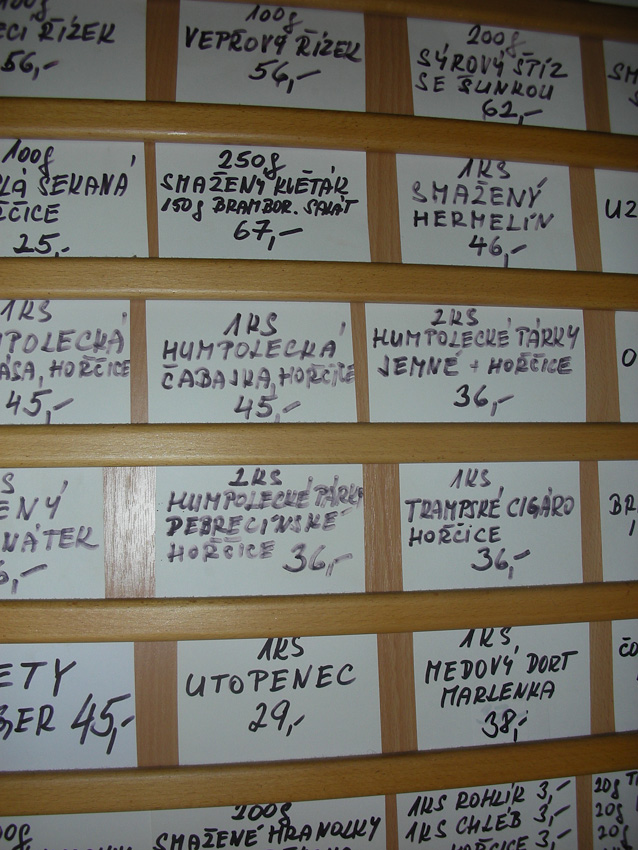 100g
ŘÍZEK
56,-
100g
VEPŘOVÝ ŘÍZEK
56,-
200g
SÝROVÝ ŠTÍZ
SE ŠUNKOU
62,-
SM
100g
LÁ SEKANÁ
25,-
250g
SMAŽENÝ KVĚTÁK
150g BRAMBOR. SALÁT
67,-
1KS
SMAŽENÝ
HERMELÍN
46,-
UZ
1KS
POLECKÁ
ÁSA, HOŘČICE
45,-
1KS
HUMPOLECKÁ
ČABAJKA, HOŘČICE
45,-
2KS
HUMPOLECKÉ PÁRKY
JEMNÉ + HOŘČICE
36,-
O
S
ENÝ
NÁTEK
2KS
HUMPOLECKÉ PÁRKY
DEBRECINSKÉ
HOŘČICE 36,-
1KS
TRAMPSKÉ CIGÁRO
HOŘČICE
36,-
BR
1
ETY
BER 45,-
1KS
UTOPENEC
29,-
1KS
MEDOVÝ DORT
MARLENKA
38,-
ČO
00g
200g
SMAŽENÉ HRANOLKY
1KS ROHLÍK 3,-
1KS CHLÉB 3,-
HOŘČICE 3,-
20g T
20g
20g